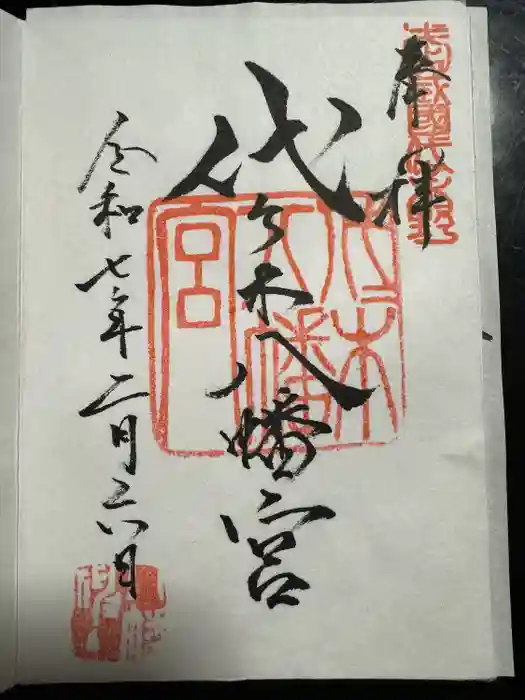 奉拝
代々木八幡宮
代々木
八幡
宮
令和七年二月六日